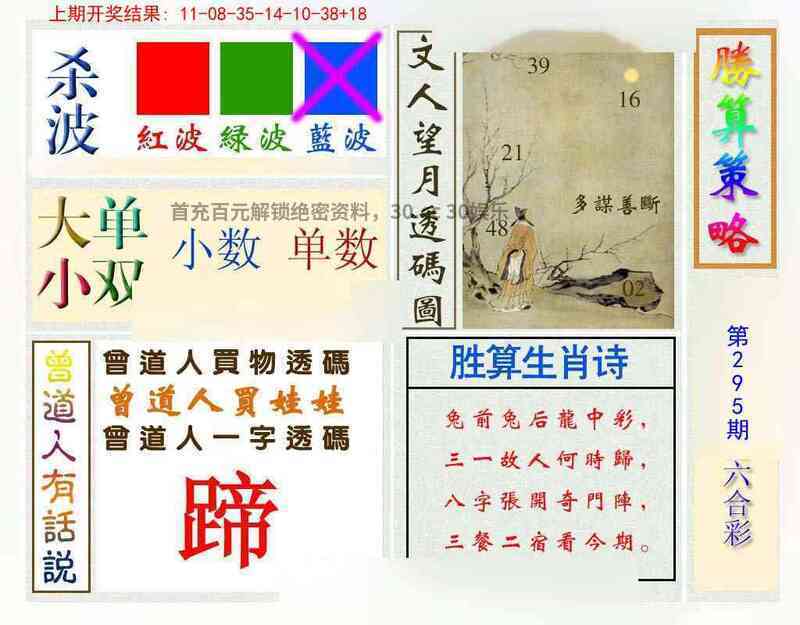 上期开奖结果: 11-08-35-14-10-38+18
杀波
紅波 緑波 藍波
大单
小双
小数 单数
首充百元解锁绝密资料，30
30娱乐
文人望月透碼圖
39
16
21
48
02
多謀善斷
勝算策略
第295期
六合彩
曾道人有話説
曾道人買物透碼
曾道人買娃娃
曾道人一字透碼
蹄
胜算生肖诗
兔前兔后龍中彩，
三一故人何時歸，
八字張開奇門陣，
三餐二宿看今期。